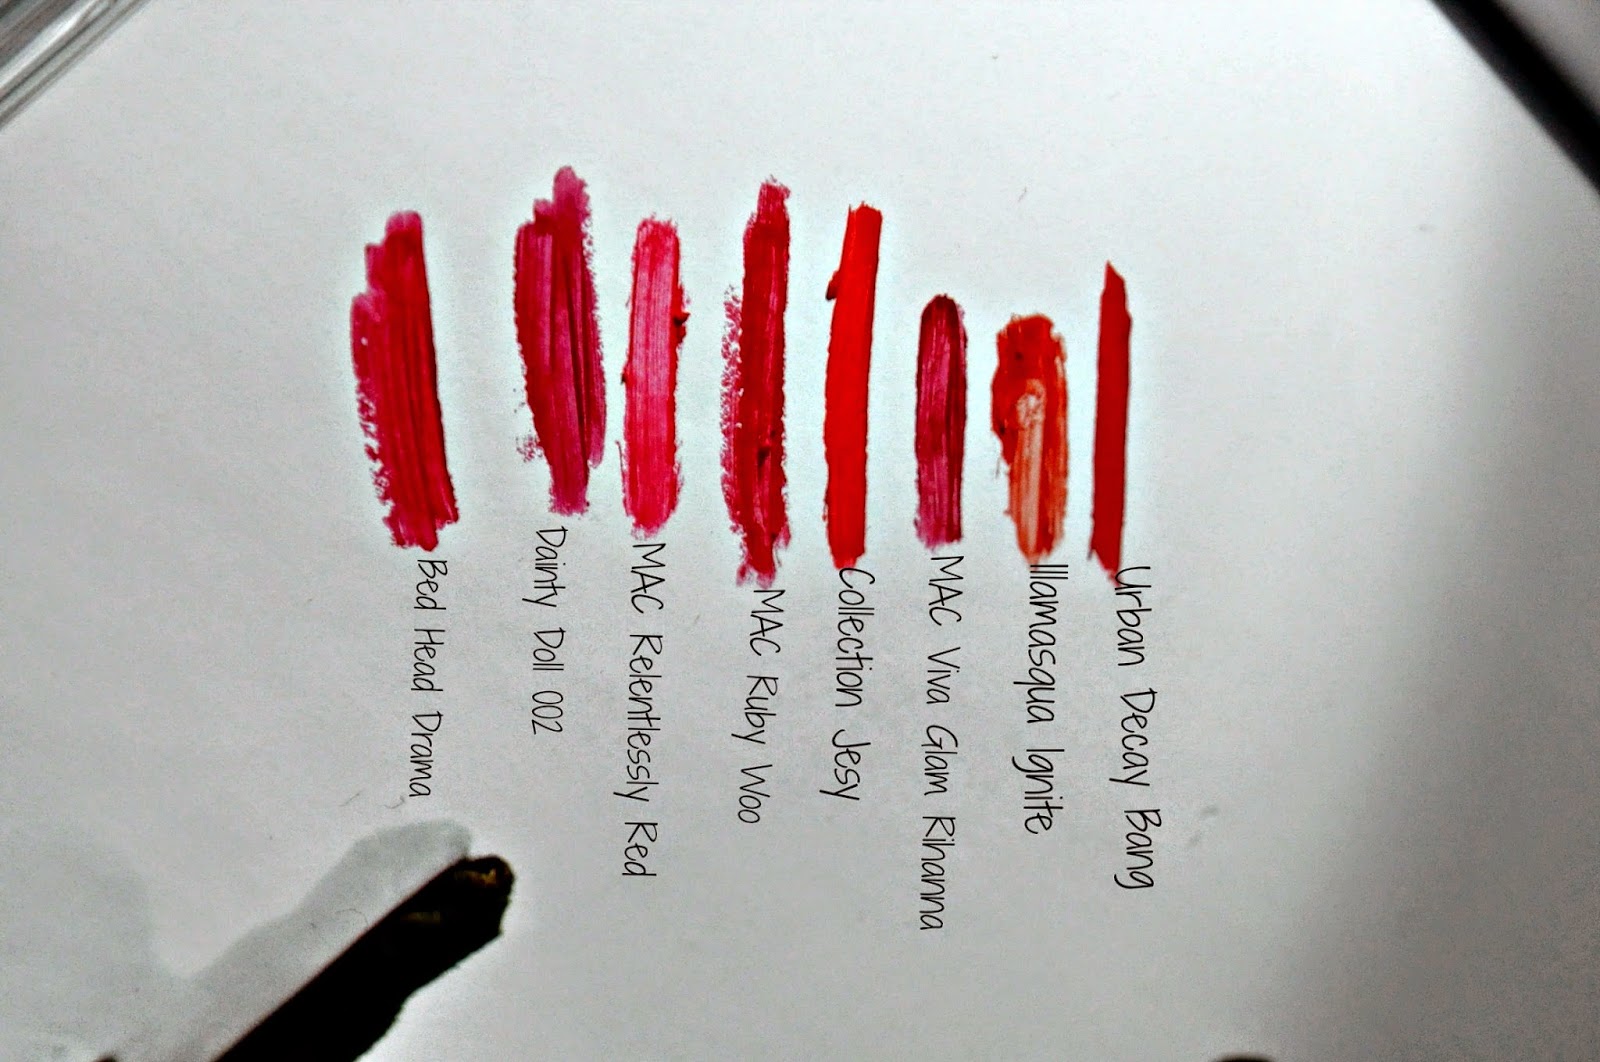 Bed Head Drama
Dainty Doll 002
MAC Relentlessly Red
MAC Ruby Woo
Collection Jesy
MAC Viva Glam Rihanna
Illamasqua Ignite
Urban Decay Bang